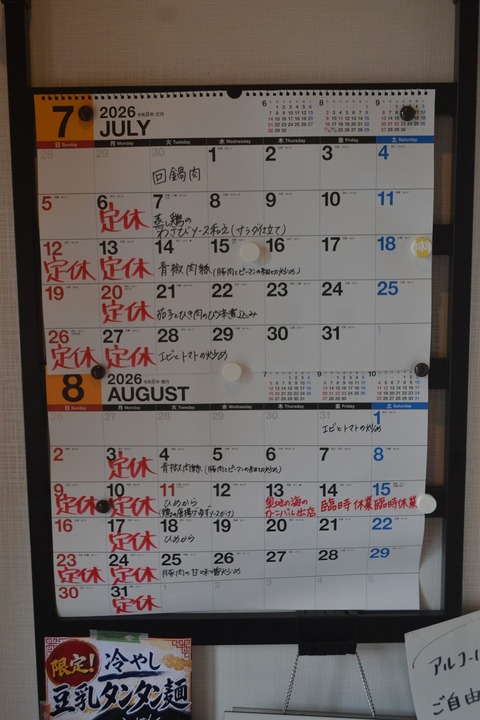 7
2026
JULY
6
8
9
日 Sunday 月 Monday 火 Tuesday 水 Wednesday 木 Thursday 金 Friday 土 Saturday
28 29 30 1 2 3 4
回鍋肉
5 6 7 8 9 10 11
定休
蒸し鶏の
わさびソース和え(サラダ仕立て)
12 13 14 15 16 17 18
定休 定休 青椒肉絲(豚肉とピーマンの細切り炒め)
19 20 21 22 23 24 25
定休 茄子とひき肉のピリ辛煮込み
26 27 28 29 30 31
定休 定休 エビとトマトの炒め
8
2026
AUGUST
7
9
10
日 Sunday 月 Monday 火 Tuesday 水 Wednesday 木 Thursday 金 Friday 土 Saturday
1
エビとトマトの炒め
2 3 4 5 6 7 8
定休 青椒肉絲(豚肉とピーマンの細切り炒め)
9 10 11 12 13 14 15
定休 定休 ひめから
臨時休業 臨時休業
カーニバル出店
16 17 18 19 20 21 22
定休 ひめから
23 24 25 26 27 28 29
定休 定休 豚肉の甘味噌炒め
30 31
定休
限定!
冷やし
豆乳タンタン麺
アルコール
ご自由